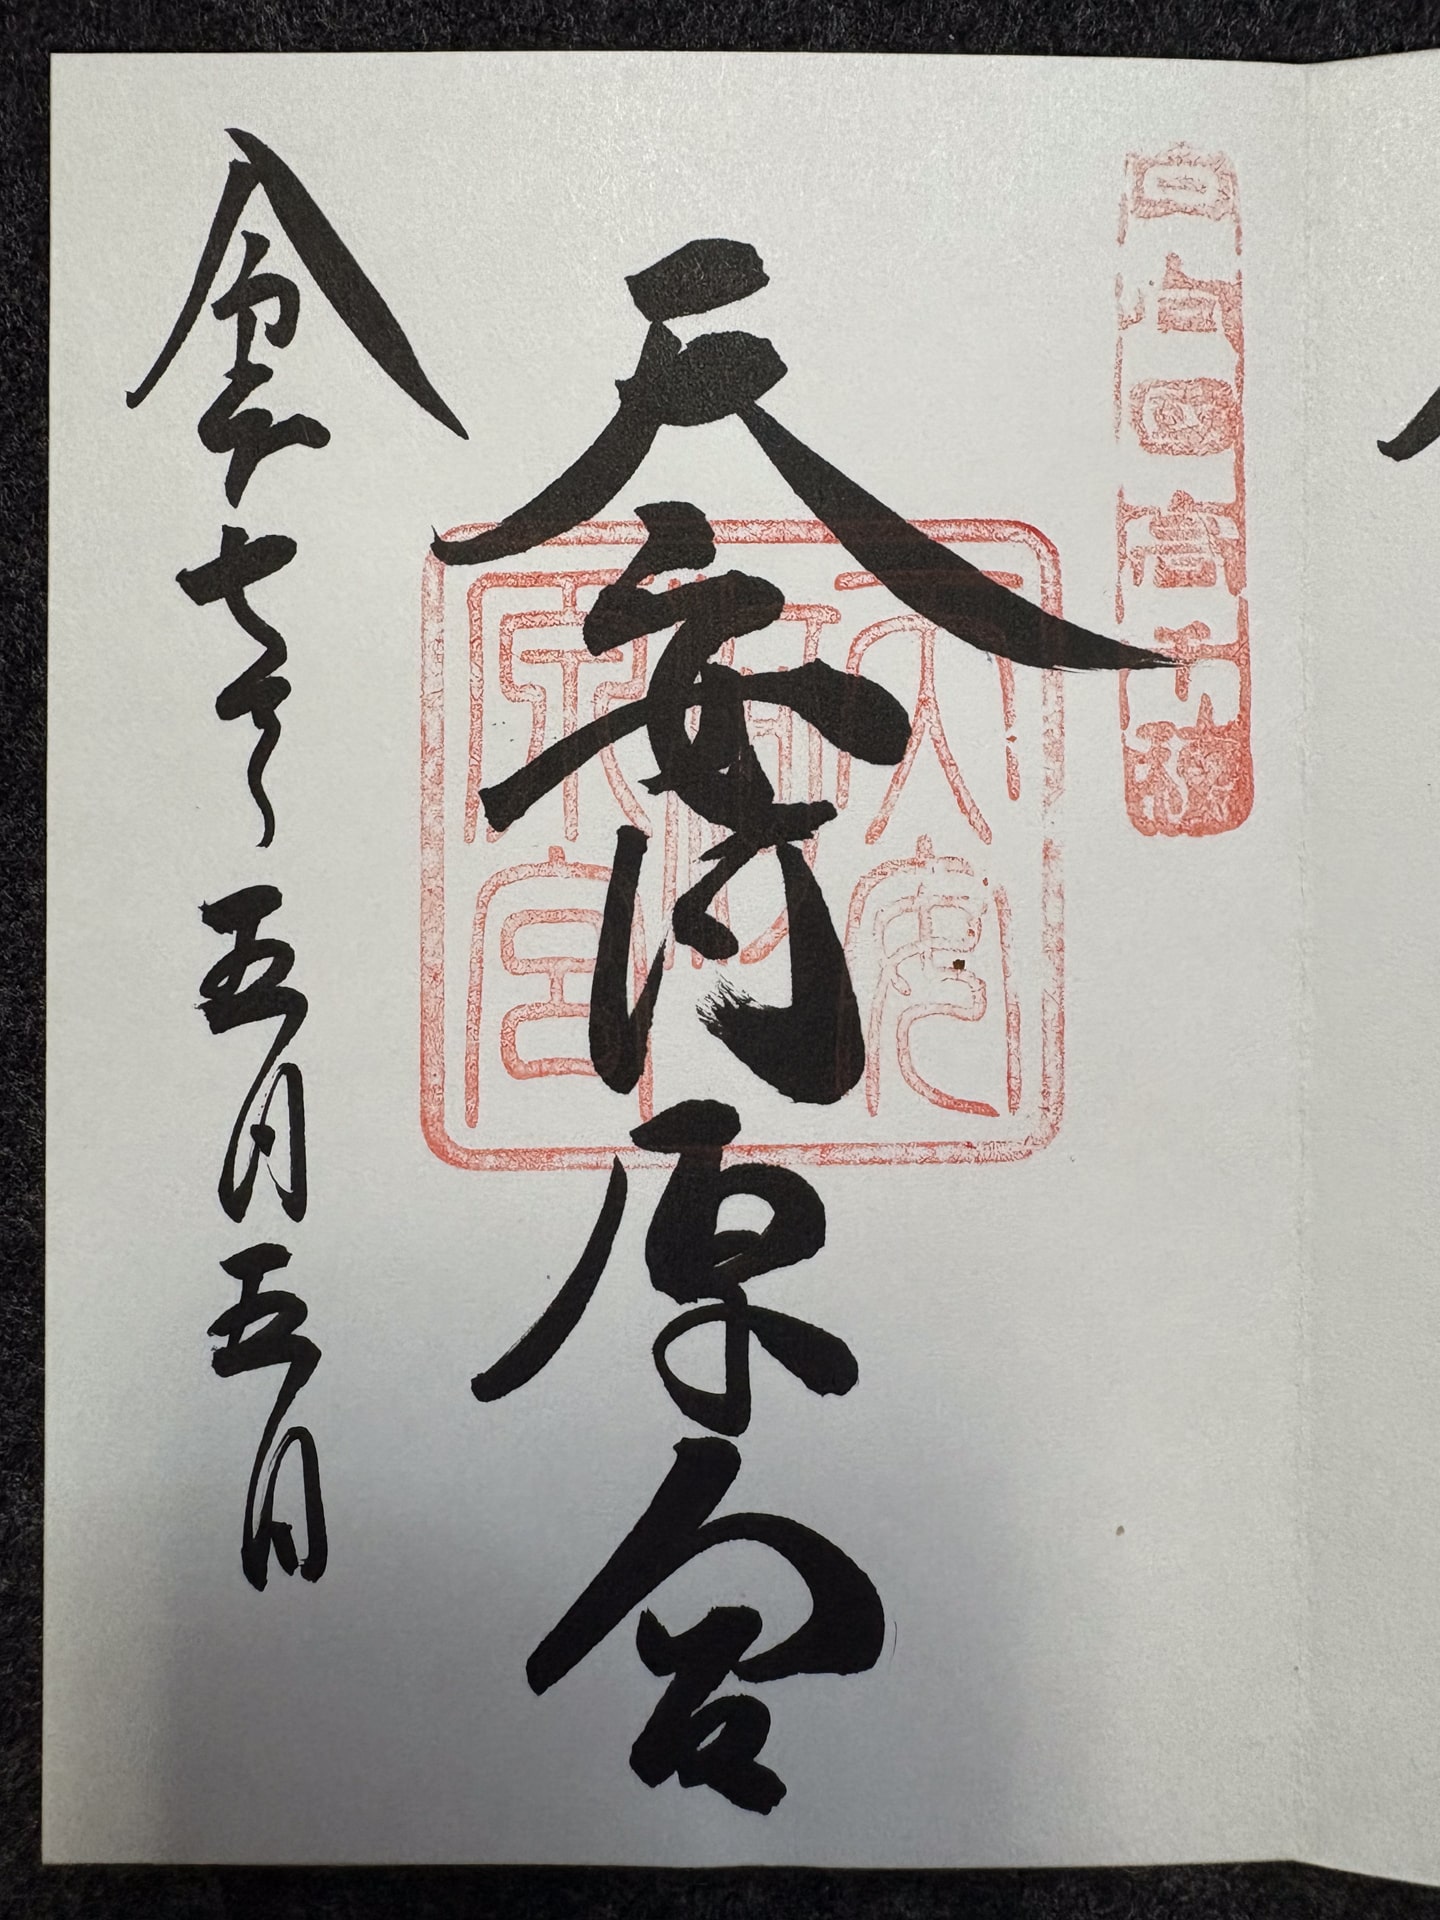 日向國高千穂
天安河原宮
天安河原宮
令和七年五月五日